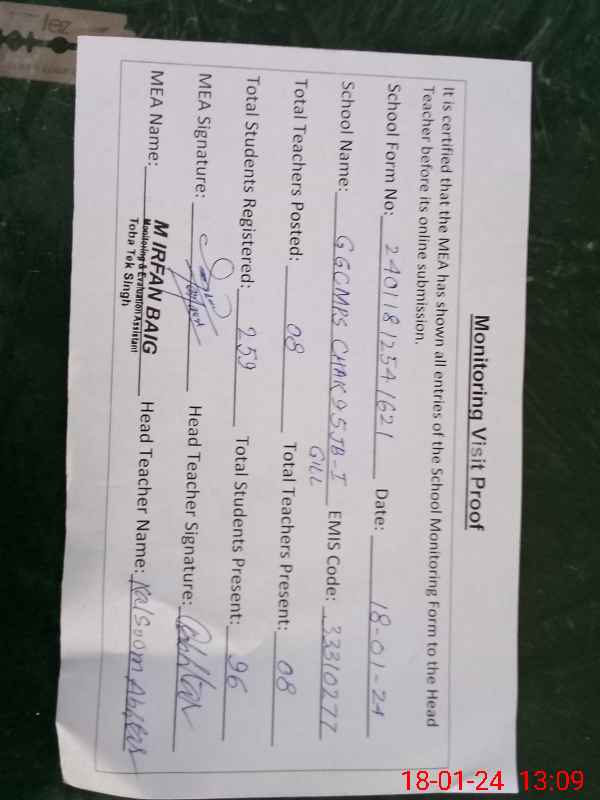 Monitoring Visit Proof
It is certified that the MEA has shown all entries of the School Monitoring Form to the Head
Teacher before its online submission.
School Form No: 2401181254 1621 Date: 18-01-24
School Name: GGCMPS CHAK 95 JB-I GILL EMIS Code: 33310277
Total Teachers Posted: 08 Total Teachers Present: 08
Total Students Registered: 259 Total Students Present: 96
MEA Signature: Head Teacher Signature:
MEA Name: M IRFAN BAIG Head Teacher Name: Kalsoom
Monitoring & Evaluation Assistant
Toba Tek Singh
18-01-24 13:09